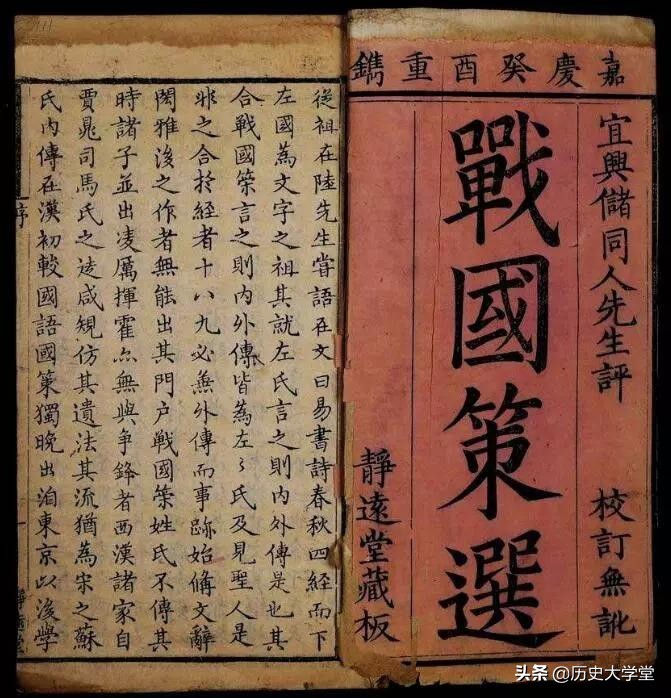 嘉慶癸酉重鐫
宜興儲同人先生評
校訂無訛
戰國策選
靜遠堂藏板
從祖在陸先生嘗語在文曰易書詩春秋四經而下
左國為文字之祖其就左氏言之則內外傳是也其
合戰國策言之則內外傳皆為左々氏及見聖人是
非之合於經者十八九必無外傳而事跡始備文辭
閎雅後之作者無能出其門戶戰國策姓氏不傳其
時諸子並出凌厲揮霍尓無與爭鋒者西漢諸家自
賈晁司馬氏之逵咸規仿其遺法其流猶為宋之蘇
氏內傳在漢初較國語國策獨晚出洎東京以後學
序
一
頭条 @历史大学堂